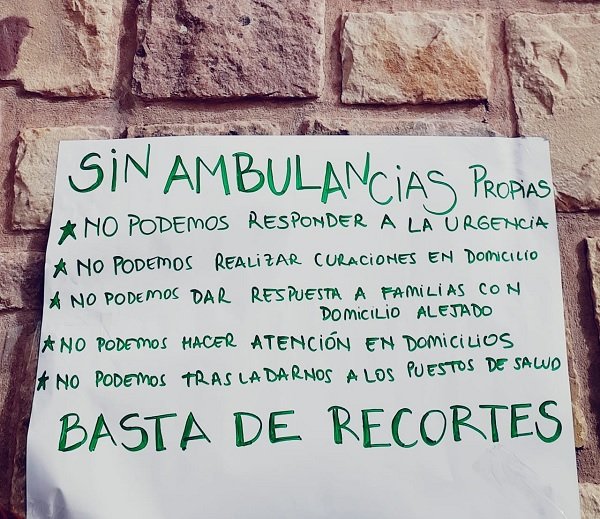 SIN AMBULANCIAS PROPIAS
★ NO PODEMOS RESPONDER A LA URGENCIA
★ NO PODEMOS REALIZAR CURACIONES EN DOMICILIO
★ NO PODEMOS DAR RESPUESTA A FAMILIAS CON
DOMICILIO ALEJADO
★ NO PODEMOS HACER ATENCIÓN EN DOMICILIOS
★ NO PODEMOS TRASLADARNOS A LOS PUESTOS DE SALUD
BASTA DE RECORTES